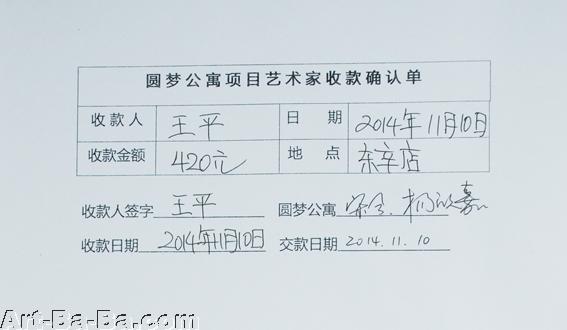 圆梦公寓项目艺术家收款确认单
收款人 王平 日期 2014年11月10日
收款金额 420元 地点 东辛店
收款人签字 王平 圆梦公寓
收款日期 2014年11月10日 交款日期 2014.11.10
Art-Ba-Ba.com
Art-Ba-Ba.com